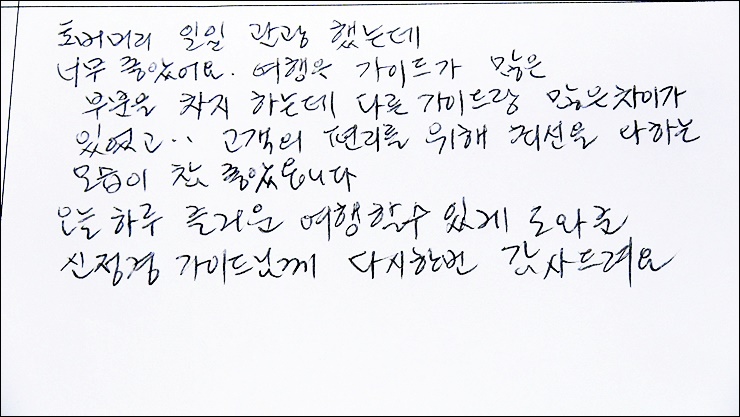 토버머리 일일 관광 했는데
너무 좋았어요. 여행은 가이드가 많은
부분을 차지 하는데 다른 가이드랑 많은 차이가
있었고.. 고객의 편리를 위해 최선을 다하는
모습이 참 좋았습니다
오늘 하루 즐거운 여행할수 있게 도와준
신정경 가이드님께 다시한번 감사드려요